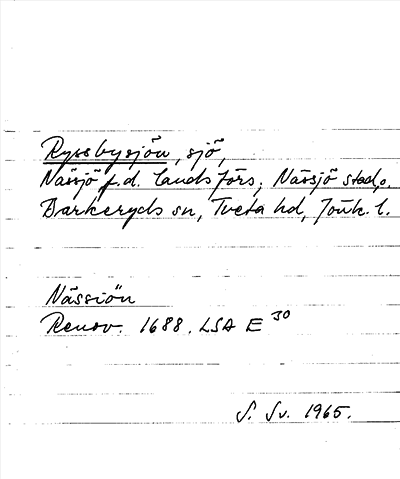 Ryssbysjön, sjö,
Nässjö f.d. landsförs., Nässjö stad,
Barkeryds sn, Tveta hd, Jönk. l.
Nässiön
Renov. 1688. LSA E 30
S. Sv. 1965.